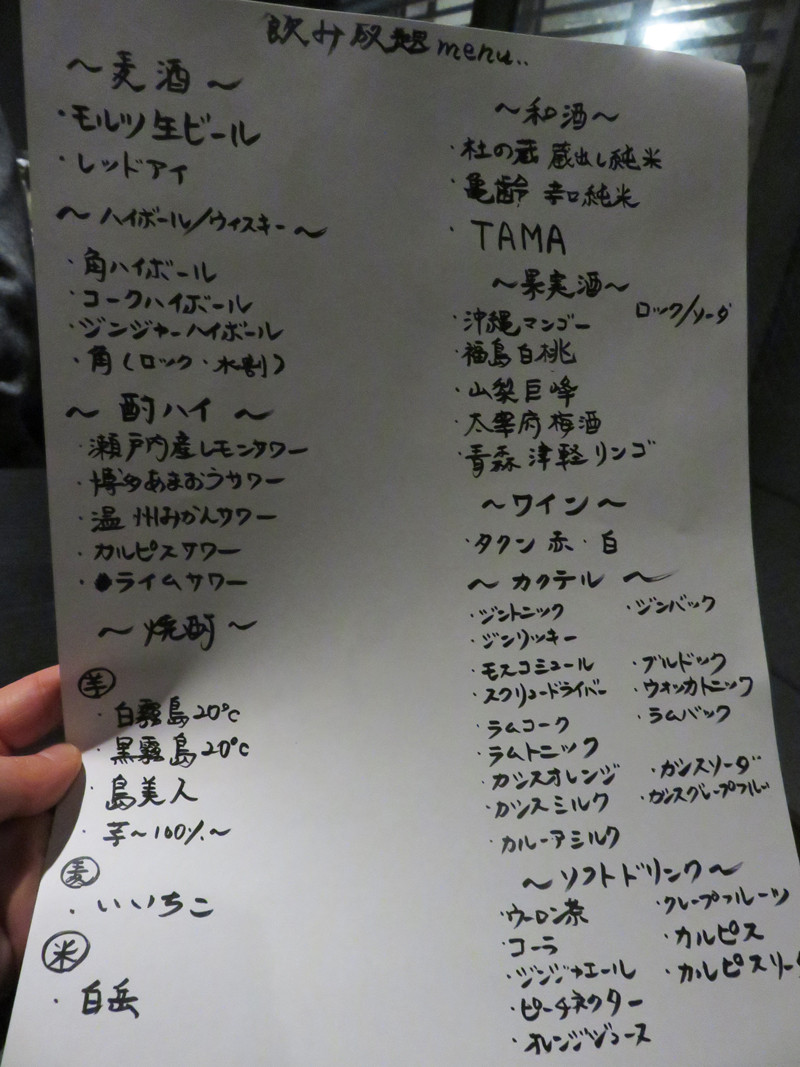 飲み放題menu..
～麦酒～
・モルツ生ビール
・レッドアイ
～ハイボール/ウィスキー～
・角ハイボール
・コークハイボール
・ジンジャーハイボール
・角(ロック・水割)
～酎ハイ～
・瀬戸内産レモンサワー
・博多あまおうサワー
・温州みかんサワー
・カルピスサワー
・ライムサワー
～焼酎～
芋
・白霧島20℃
・黒霧島20℃
・島美人
・芋～100%～
麦
・いいちこ
米
・白岳
～和酒～
・杜の蔵 蔵出し純米
・亀齢 辛口純米
・TAMA
～果実酒～
ロック/ソーダ
・沖縄マンゴー
・福島白桃
・山梨巨峰
・太宰府梅酒
・青森津軽リンゴ
～ワイン～
・タクン 赤・白
～カクテル～
・ジントニック ・ジンバック
・ジンリッキー
・モスコミュール ・ブルドック
・スクリュードライバー ・ウォッカトニック
・ラムコーク ・ラムバック
・ラムトニック
・カシスオレンジ ・カシスソーダ
・カシスミルク ・カシスグレープフル
・カルーアミルク
～ソフトドリンク～
・ウーロン茶 ・グレープフルーツ
・コーラ ・カルピス
・ジンジャエール ・カルピスソーダ
・ピーチネクター
・オレンジジュース